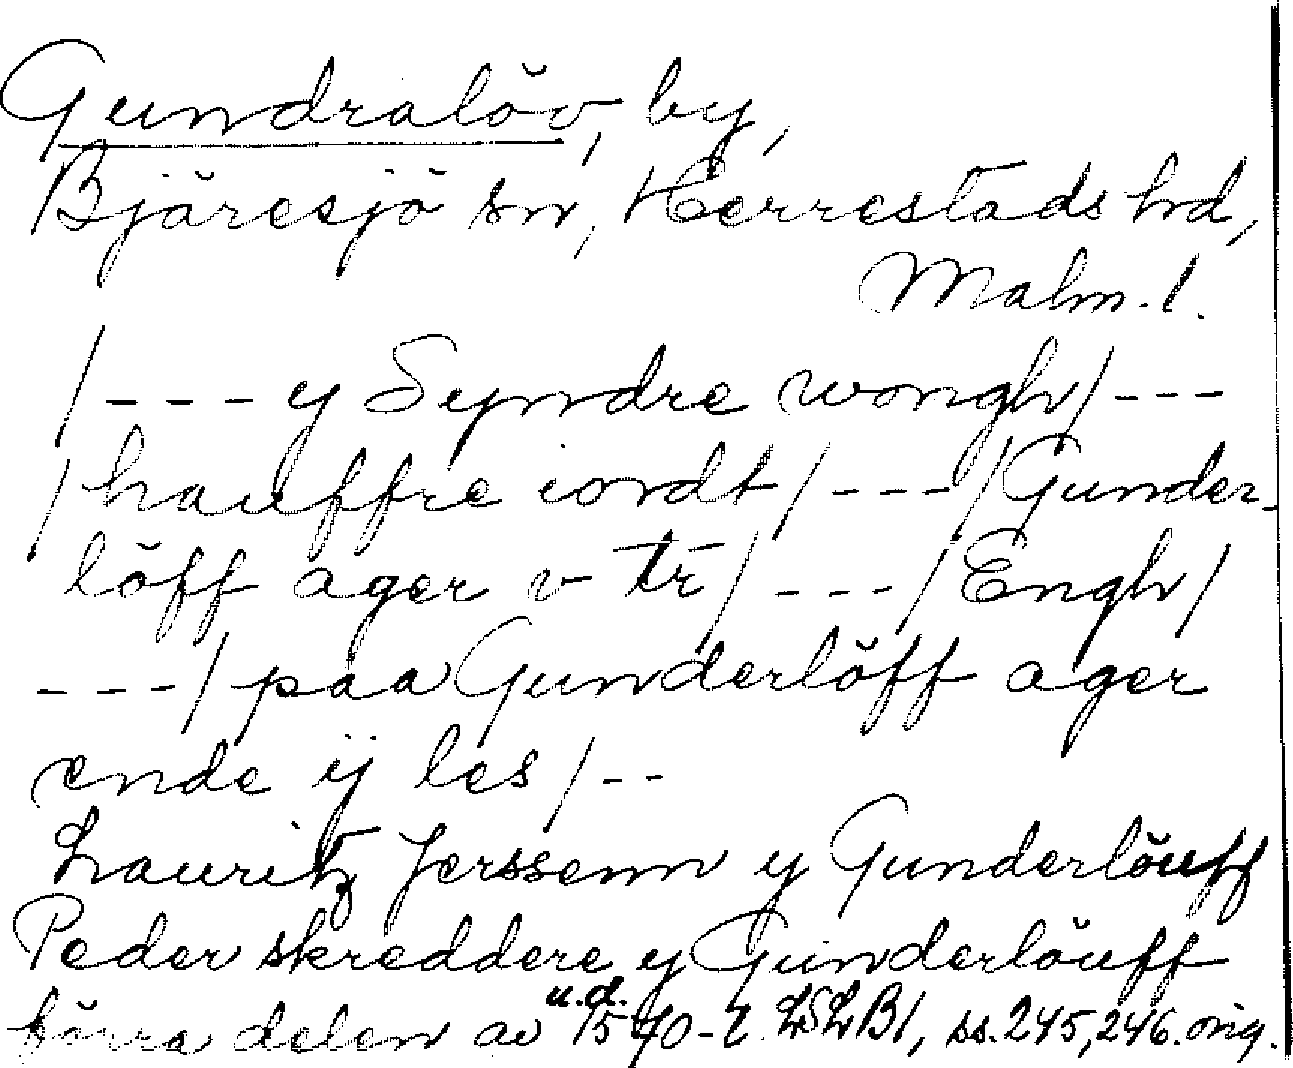 Gundralöv, by,
Bjäresjö sn, Herrestads hd,
Malm. l.
/ - - - y Syndre wongh / - - -
/ hauffre iordt / - - - / Gunder-
löff ager v tr / - - - / Engh /
- - - / paa Gunderlöff ager
ende ÿ les / - -
Lauritz Jerssenn y Gunderlöuff
Peder skreddere y Gunderlöuff
u.d.
förra delen av 1540-t. LSLB1, ss. 245, 246. orig.